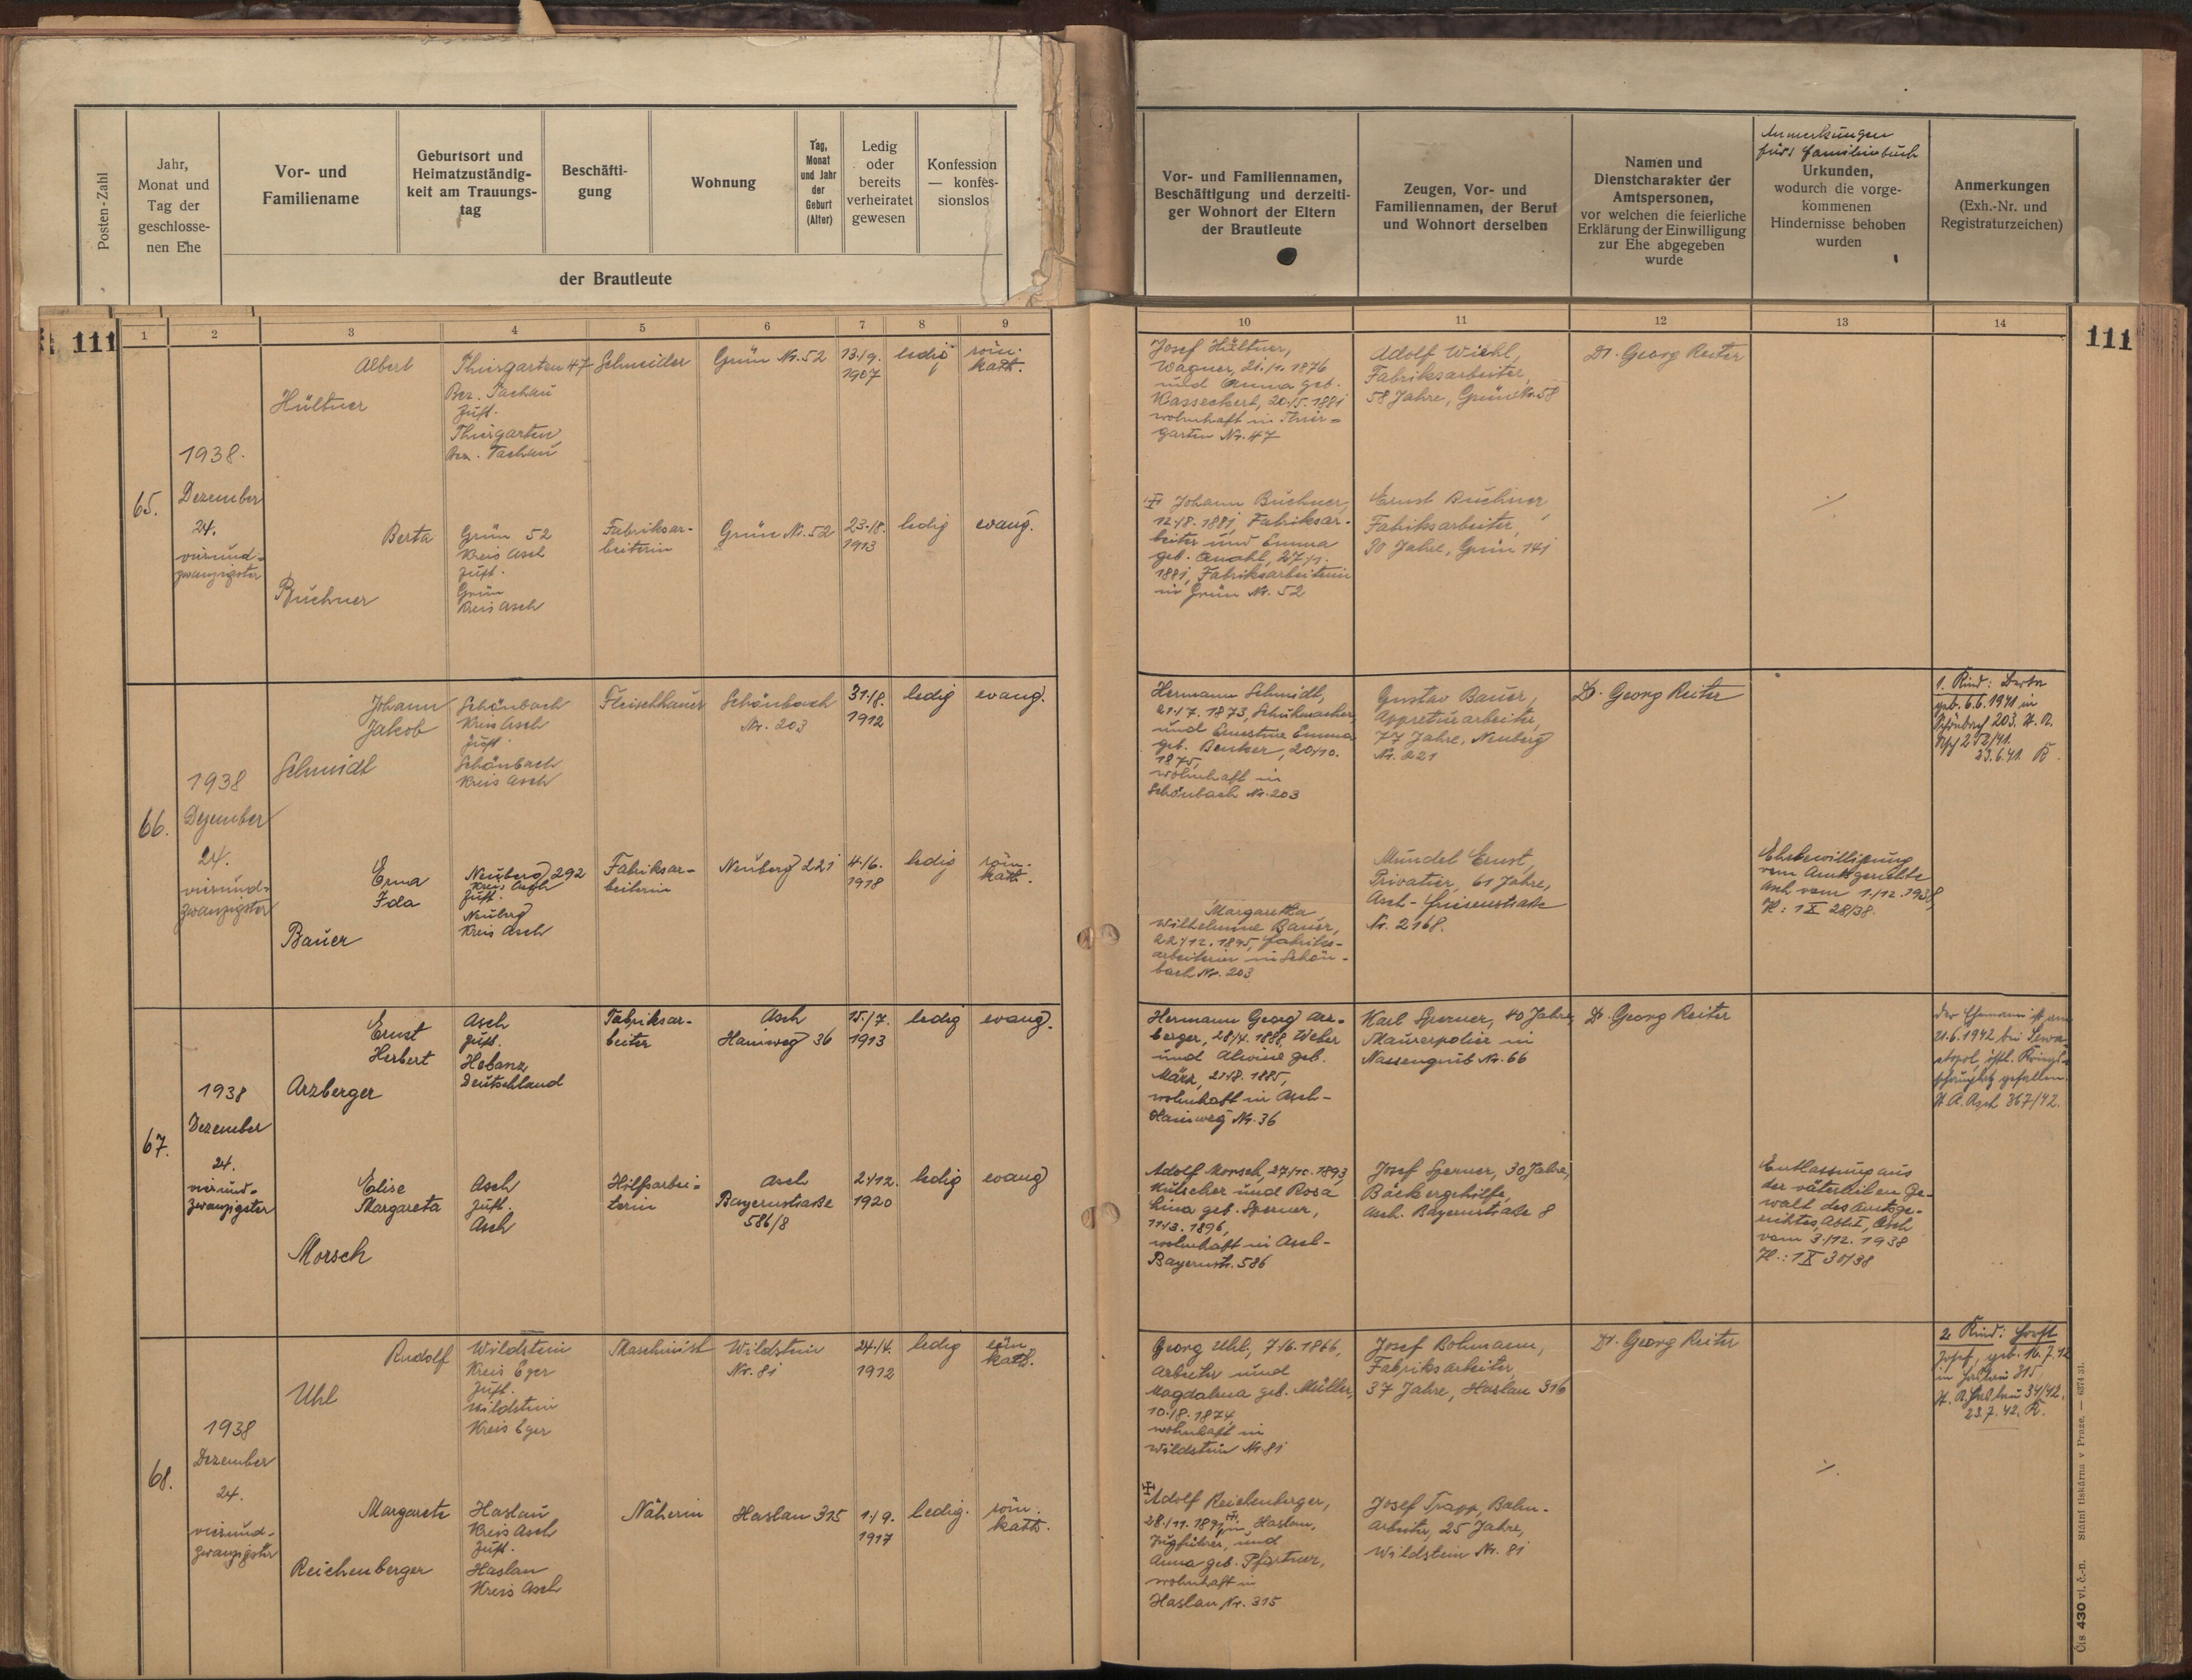 Posten-Zahl
Jahr,
Monat und
Tag der
geschlosse-
nen Ehe
Vor- und
Familiename
Geburtsort und
Heimatzuständig-
keit am Trauungs-
tag
Beschäfti-
gung
Wohnung
Tag,
Monat
und Jahr
der
Geburt
(Alter)
Ledig
oder
bereits
verheiratet
gewesen
Konfession
— konfes-
sionslos
der Brautleute
Vor- und Familiennamen,
Beschäftigung und derzeiti-
ger Wohnort der Eltern
der Brautleute
Zeugen, Vor- und
Familiennamen, der Beruf
und Wohnort derselben
Namen und
Dienstcharakter der
Amtspersonen,
vor welchen die feierliche
Erklärung der Einwilligung
zur Ehe abgegeben
wurde
Anmerkungen
fürs Familienbuch
Urkunden,
wodurch die vorge-
kommenen
Hindernisse behoben
wurden
Anmerkungen
(Exh.-Nr. und
Registraturzeichen)
111
1 2 3 4 5 6 7 8 9
10 11 12 13 14
111
65.
1938.
Dezember
24.
vierund-
zwanzigster
Albert
Hültner
Thiergarten 47
Bez. Tachau
Zust.
Thiergarten
Bez. Tachau
Schneider
Grün Nr. 52
13./9.
1907
ledig
röm.
kath.
Josef Hültner,
Wagner, 21./1. 1876
und Anna geb.
Wasseckert, 20./5. 1881
wohnhaft in Thier-
garten Nr. 47
Adolf Wiehl,
Fabriksarbeiter,
58 Jahre, Grün Nr. 58
Dr. Georg Reiter
Berta
Buchner
Grün 52
Kreis Asch
Zust.
Grün
Kreis Asch
Fabriksar-
beiterin
Grün Nr. 52
23./8.
1913
ledig
evang.
Johann Buchner,
12./8. 1881, Fabriksar-
beiter und Emma
geb.
1881, Fabriksarbeiterin
in Grün Nr. 52
Ernst Buchner,
Fabriksarbeiter,
30 Jahre, Grün 141
./.
66.
1938
Dezember
24.
vierund-
zwanzigster
Johann
Jakob
Schmidt
Schönbach
Kreis Asch
Zust.
Schönbach
Kreis Asch
Fleischhauer
Schönbach
Nr. 203
31./8.
1912
ledig
evang.
Hermann Schmidt,
21./7. 1873, Schuhmacher,
und Ernestine Emma
geb. Benker, 20./10.
1875,
wohnhaft in
Schönbach Nr. 203
Gustav Bauer,
Appreturarbeiter,
77 Jahre, Neuberg
Nr. 221
Dr. Georg Reiter
1. Kind: Berta
geb. 6.6.1941 in
Schönbach 203. St. A.
Asch 252/41.
23.6.41. K.
Erna
Ida
Bauer
Neuberg 292
Kreis Asch
Zust.
Neuberg
Kreis Asch
Fabriksar-
beiterin
Neuberg 221
4./6.
1918
ledig
röm.
kath.
Margaretha
Wilhelmine Bauer,
22./12. 1895, Fabriks-
arbeiterin in Schön-
bach Nr. 203
Mündel Ernst,
Privatier, 61 Jahre,
Asch-
Nr. 2168.
Ehebewilligung
vom Amtsgerichte
Asch vom 1./12. 1938,
Zl: 1 X 28/38.
67.
1938
Dezember
24.
vierund-
zwanzigster
Ernst
Herbert
Arzberger
Asch
Zust.
Hebanz
Deutschland
Fabriksar-
beiter
Asch
Hainweg 36
15./7.
1913
ledig
evang.
Hermann Georg Arz-
berger, 28./4. 1888, Weber
und Alwine geb.
März, 21./8. 1885,
wohnhaft in Asch-
Hainweg Nr. 36
Karl Sperner, 40 Jahre,
Maurerpolier in
Nassengrub Nr. 66
Dr. Georg Reiter
Der Ehemann ist am
21.6.1942 bei Sewa-
stopol, östl. Kriegs-
schauplatz gefallen.
St. A. Asch 367/42.
Elise
Margareta
Morsch
Asch
Zust.
Asch
Hilfsarbei-
terin
Asch
Bayernstraße
586/8
2./12.
1920
ledig
evang
Adolf Morsch, 27./10. 1893,
Kutscher und Rosa
Lina geb. Sperner,
11./3. 1896,
wohnhaft in Asch-
Bayernstr. 586
Josef Sperner, 30 Jahre,
Bäckergehilfe,
Asch. Bayernstraße 8
Entlassung aus
der väterlichen Ge-
walt des Amtsge-
richtes, Abt. I, Asch
vom 3./12. 1938
Zl.: 1 X 30/38
68.
1938
Dezember
24.
vierund-
zwanzigster
Rudolf
Uhl
Wildstein
Kreis Eger
Zust.
Wildstein
Kreis Eger
Maschinist
Wildstein
Nr. 81
24./4.
1912
ledig
röm.
kath.
Georg Uhl, 7./6. 1866,
Arbeiter und
Magdalena geb. Müller,
10./8. 1874,
wohnhaft in
Wildstein Nr. 81
Josef Bohmann,
Fabriksarbeiter,
37 Jahre, Haslau 316
Dr. Georg Reiter
2. Kind: Horst
Josef, geb. 16.7.42
in Haslau 315
St. A. Haslau 34/42.
23.7.42. K.
Margarete
Reichenberger
Haslau
Kreis Asch
Zust.
Haslau
Kreis Asch
Näherin
Haslau 315
1./9.
1917
ledig.
röm.
kath.
Adolf Reichenberger,
28./11. 1891, in Haslau,
Zugführer, und
Anna geb. Pfortner,
wohnhaft in
Haslau Nr. 315
Josef Trapp, Bahn-
arbeiter, 25 Jahre,
Wildstein Nr. 81
./.
Čís 430 vl. č.-n. Státní tiskárna v Praze. — 6374-31.